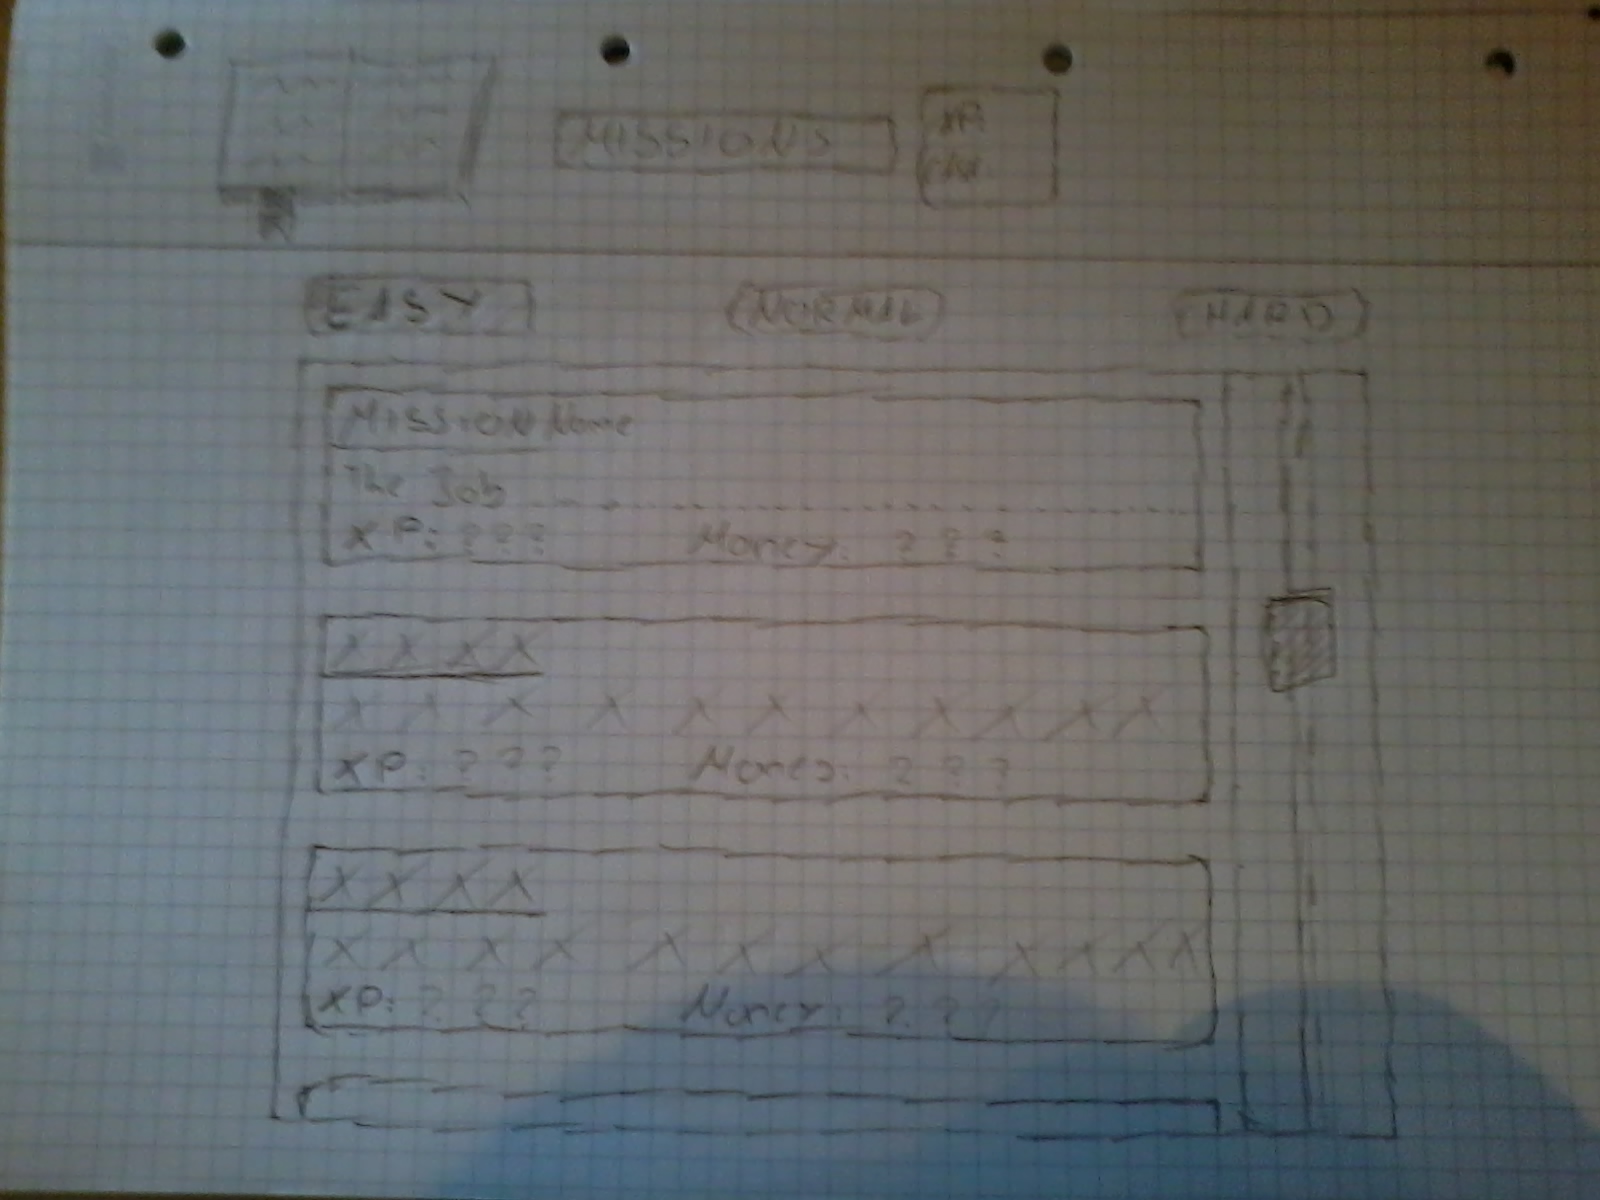 MISSIONS
XP:
EASY
NORMAL
HARD
Mission Name
The Job
XP: ???
Money: ???
X X X X
X X X X X X X X X X X
XP: ???
Money: ???
X X X X
X X X X X X X X X X X X
XP: ???
Money: ???